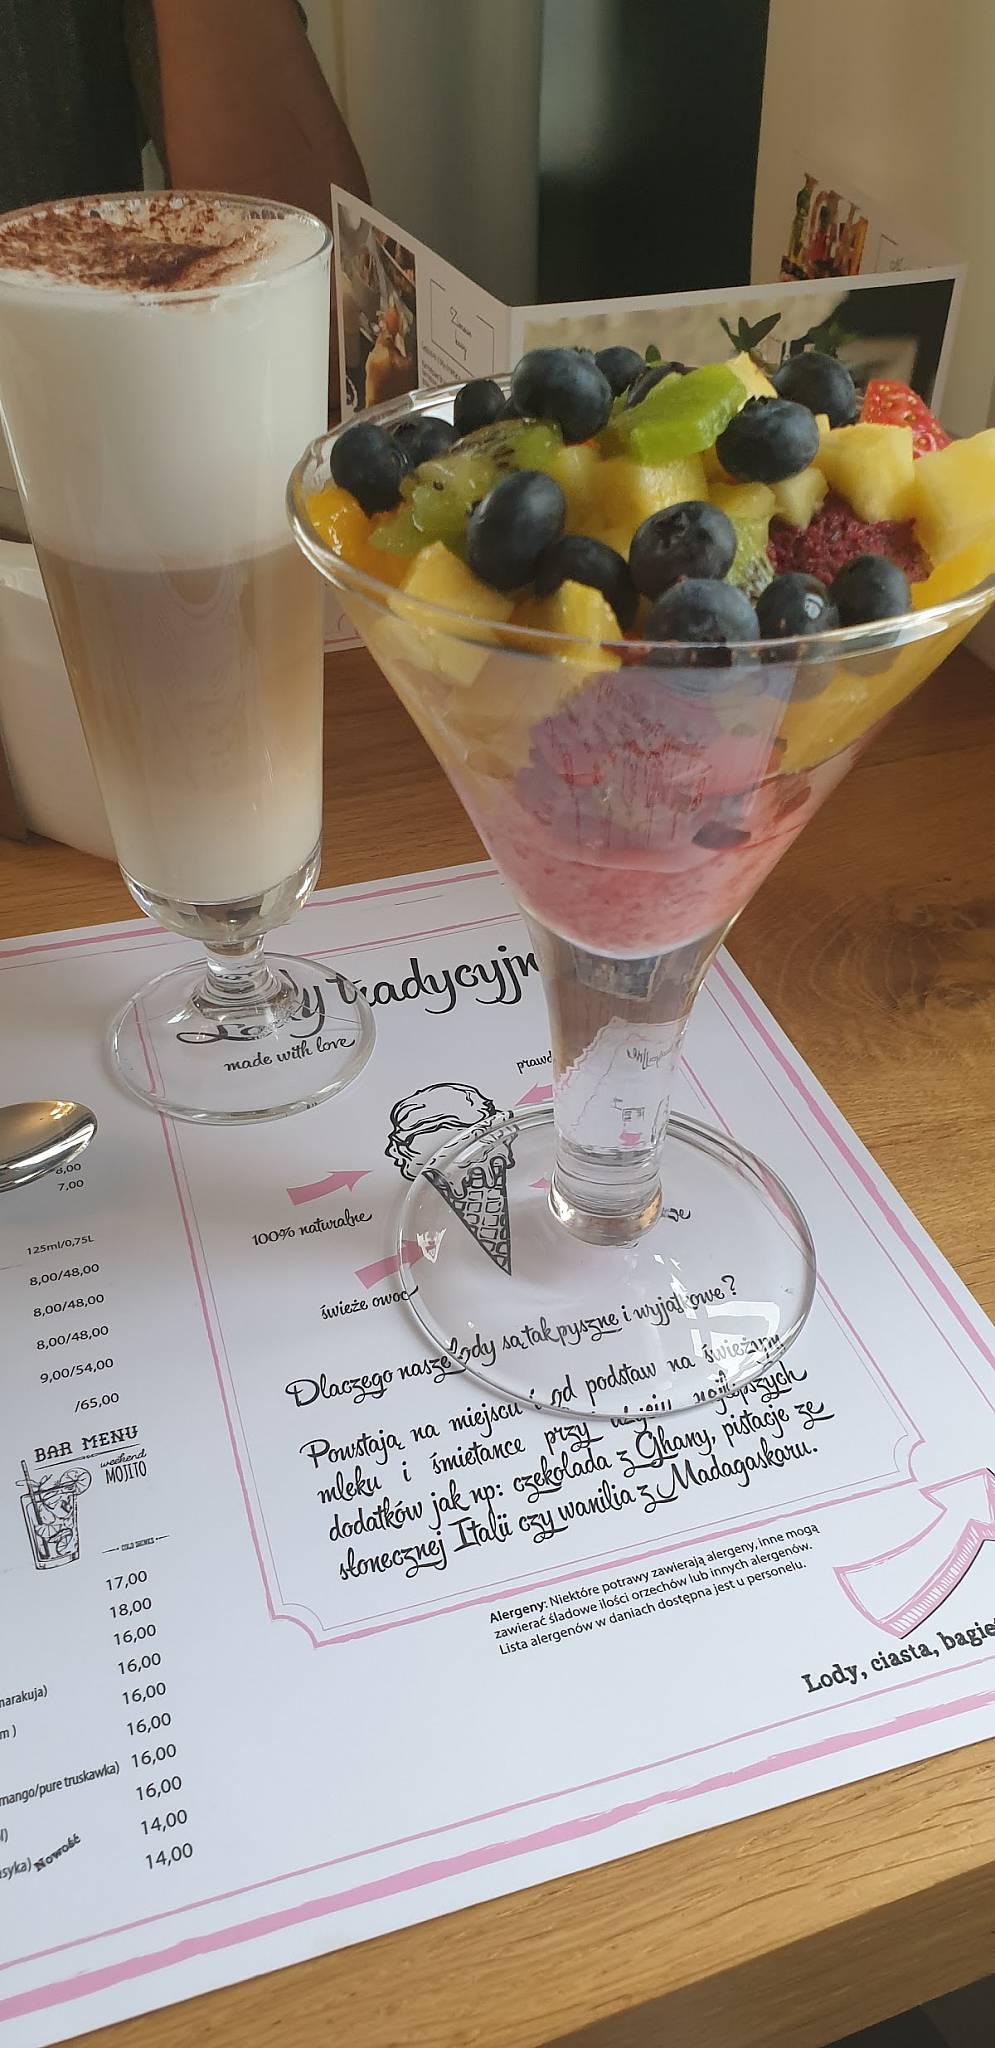 Lody tradycyjn
made with love
prawd
100% naturalne
świeże owoc
Dlaczego nasze lody są tak pyszne i wyjątkowe?
Powstają na miejscu i od podstaw na świeżym
mleku i śmietance przy użyciu najlepszych
dodatków jak np: czekolada z Ghany, pistacje ze
słonecznej Italii czy wanilia z Madagaskaru.
Alergeny: Niektóre potrawy zawierają alergeny, inne mogą
zawierać śladowe ilości orzechów lub innych alergenów.
Lista alergenów w daniach dostępna jest u personelu.
Lody, ciasta, bagie
8,00
7,00
125ml/0,75L
8,00/48,00
8,00/48,00
8,00/48,00
9,00/54,00
/65,00
BAR MENU
weekend
MOJITO
COLD DRINKS
17,00
18,00
16,00
16,00
marakuja) 16,00
m) 16,00
16,00
mango/pure truskawka) 16,00
14,00
syka) Nowość 14,00